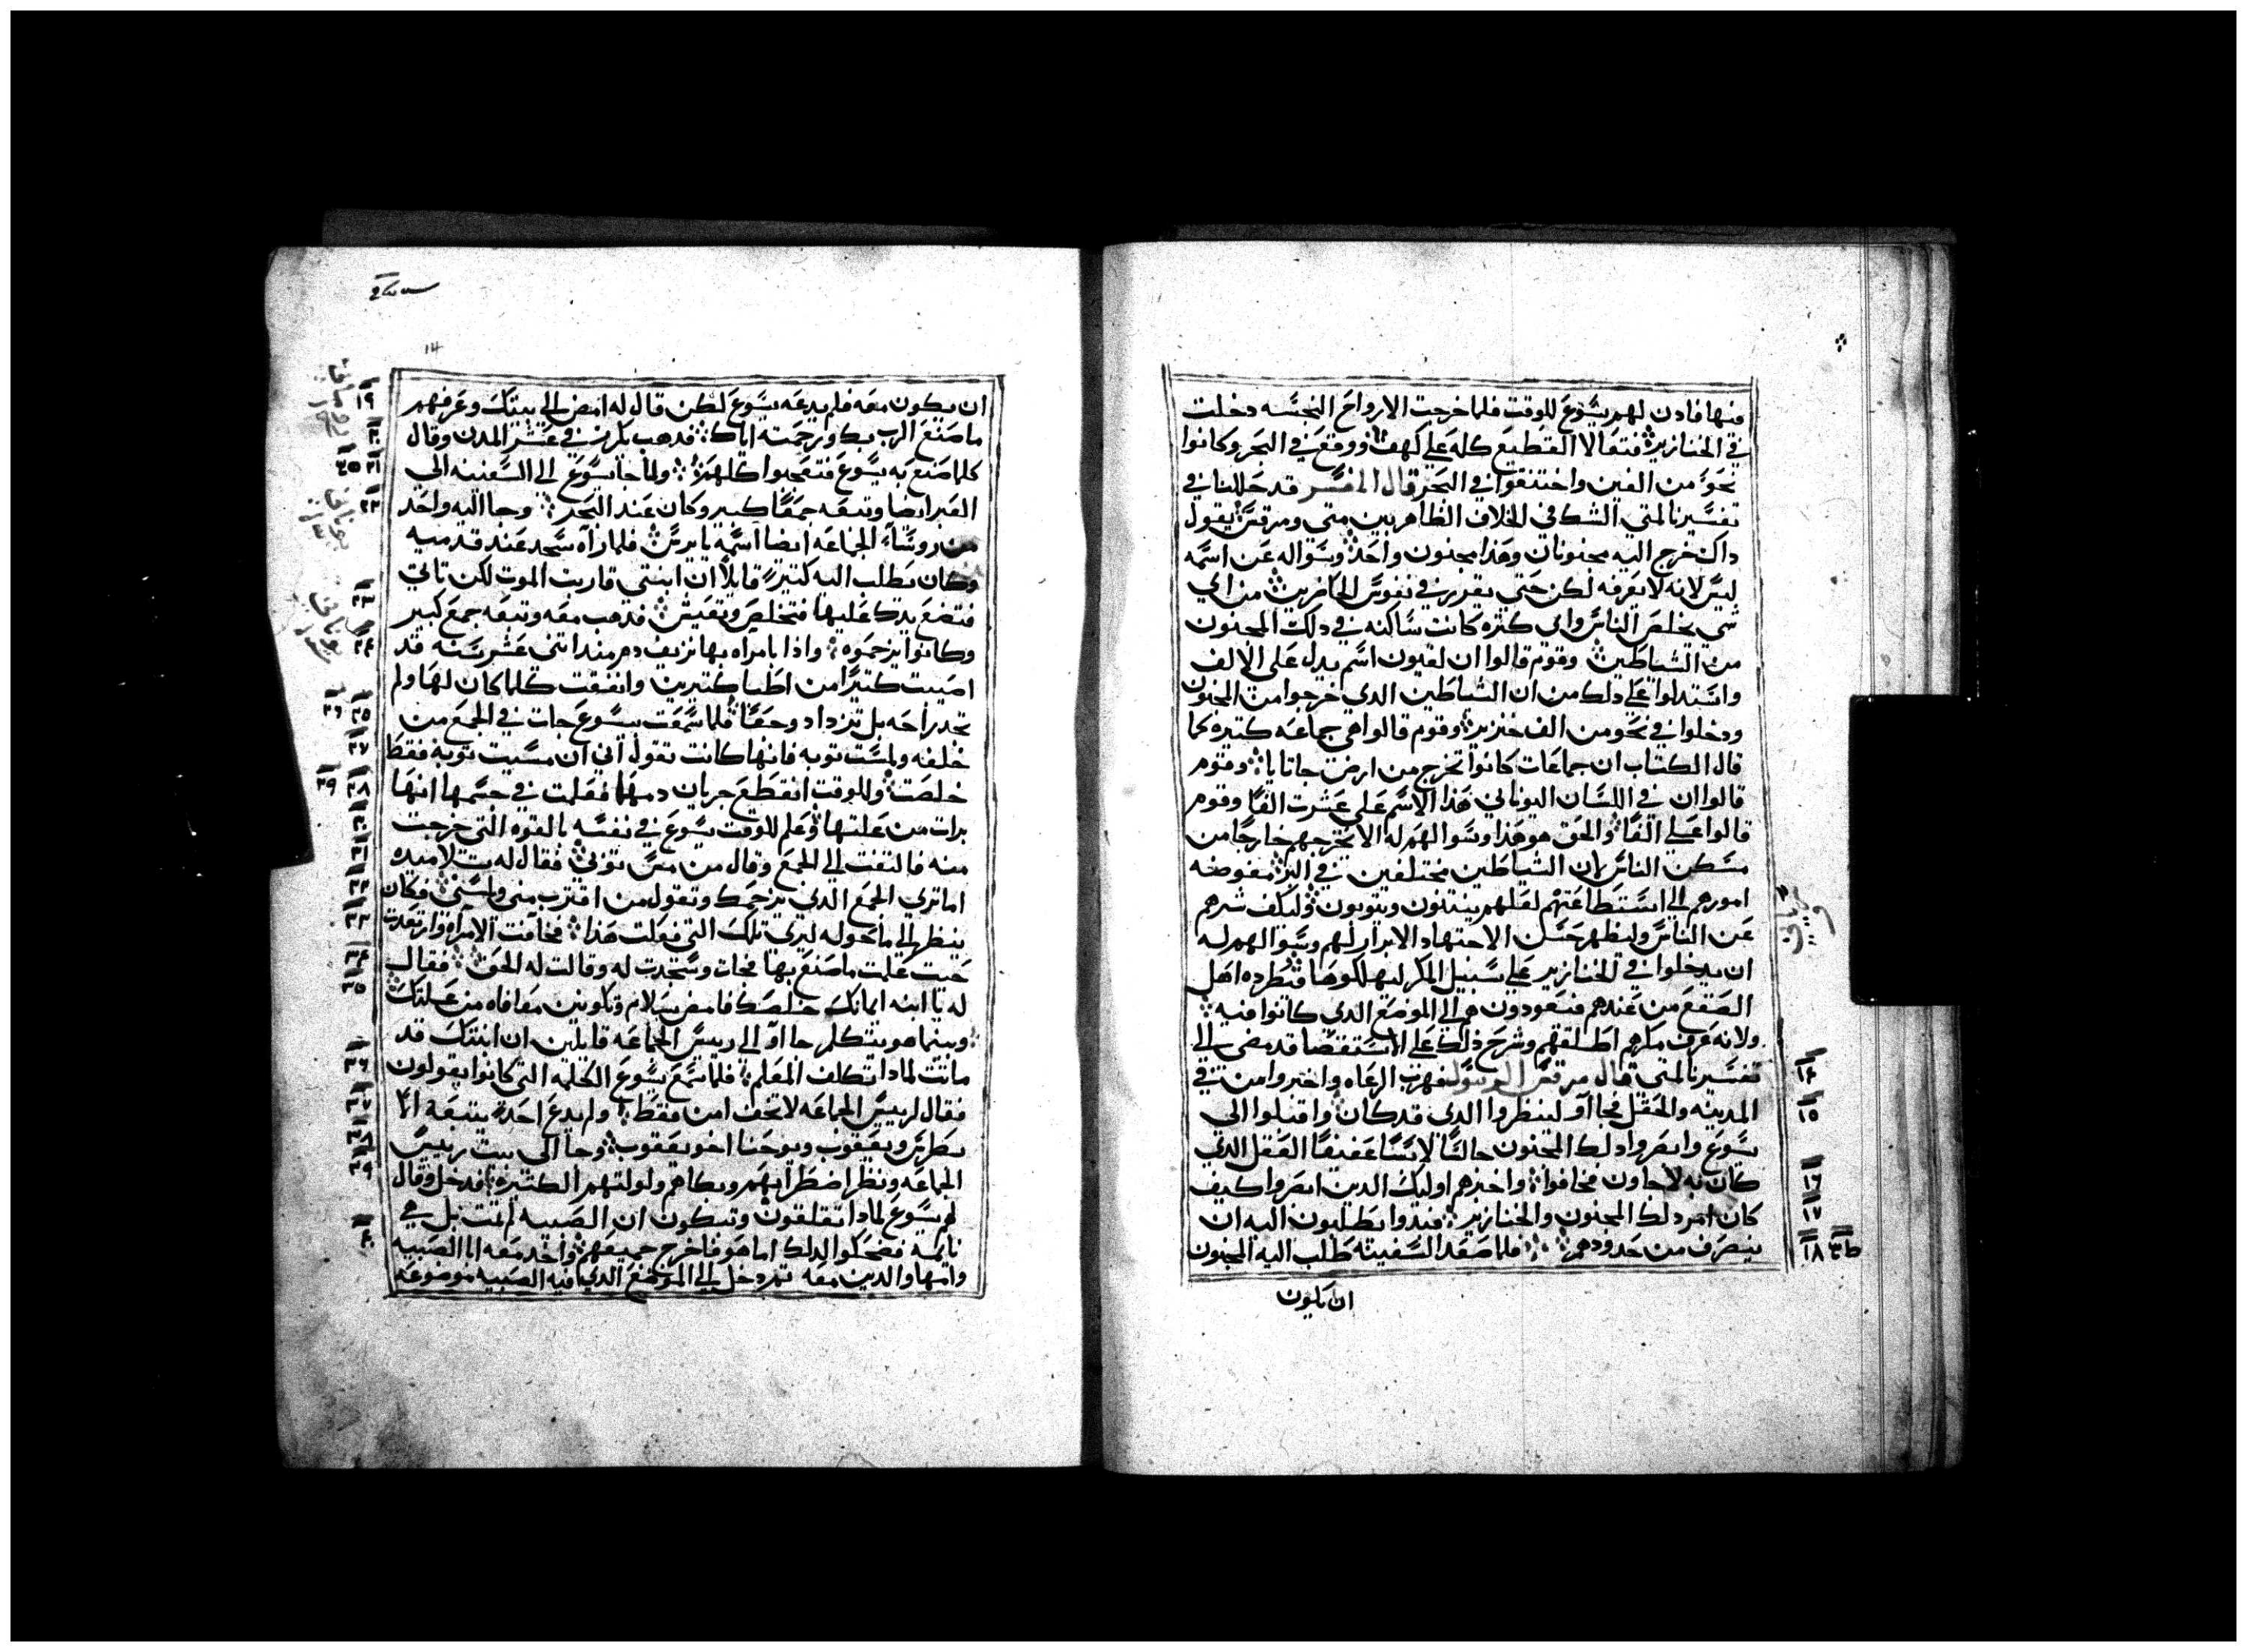 فيها فادن لهم يسوع للوقت فلما خرجت الارواح النجسه دخلت
في الخنازير فتعالا القطيع كله علي كهف ووقع في البحر وكانوا
نحو من الفين واختنقوا في البحر قال المفسر قد حللنا في
تفسيرنا لمتي الشك في الخلاف الظاهر بين متي ومرقس بقول
داك خرج اليه مجنونان وهذا مجنون واحد وسواله عن اسمه
ليس لانه لا يعرفه لكن حتي يقدر في نفوس الحاضرين من اي
شي يخلص الناس واي كثره كانت ساكنه في دلك المجنون
من الشياطين وقوم قالوا ان لغيون اسم يدل علي الالف
واستدلوا علي دلك من ان الشياطين الدي خرجوا من المجنون
ودخلوا في نحو من الف خنزير وقوم قالوا هي جماعه كتيره كما
قال الكتاب ان جماعات كانوا تخرج من ارض جاتايا وقوم
قالوا ان في اللسان اليوناني هذا الاسم علي عشرت الفا وقوم
قالوا علي الفا والحق هو هذا وسوالهم له الا يخرجهم خارجا من
مسكن الناس لان الشياطين مختلفين في البر مفوضه
امورهم الي استطاعتهم لعلهم ينتنون ويتوبون وليكف شرهم
عن الناس وليظهر حسن الاجتهاد الابرار لهم وسوالهم له
ان يدخلوا في الخنازير علي سبيل المكر ليهلكوها فتطرده اهل
الصقع من عندهم فيعودون هم الي الموضع الدي كانوا فيه
ولانه عرف مكرهم اطلقهم وشرح ذلك علي الاستقصا قد مضي الي
تفسيرنا لمتي قال مرقس الرسول فهرب الرعاه واخبروا من في
المدينه والحقل فجااو لينظروا الدي قد كان واقبلوا الي
يسوع وابصروا دلك المجنون جالسا لابسا عفيفا العقل الدي
كان به لاجاون فخافوا واخبرهم اوليك الدين ابصروا كيف
كان امر دلك المجنون والخنازير فبدوا يطلبون اليه ان
ينصرف من حدودهم فلما صعد السفينه طلب اليه المجنون
ان يكون
١٤
١٥
١٦
١٧
١٨
ان يكون معه فلم يدعه يسوع لكن قال له امض الي بيتك وعرفهم
ما صنع الرب بك ورحمته اياك فدهب يكرز في عشر المدن وقال
كلما صنع به يسوع فتعجبوا كلهم ولما جا يسوع الي السفينه الي
العبر ايضا وتبعه جمعا كبير وكان عند البحر وجا اليه واحد
من روسا الجماعه ايضا اسمه يايرس فلما راه سجد عند قدميه
وكان يطلب اليه كتيرا قايلا ان ابنتي قاربت الموت لكن تاتي
فتضع يدك عليها فتخلص وتعيش فدهب معه وتبعه جمع كبير
وكانوا يزحموه واذا بامراه بها نزيف دم مند اتني عشر سنه قد
اصيبت كتيرا من اطبا كتيرين وانفقت كلما كان لها ولم
تجد راحه بل تزداد وجعا فلما سمعت بيسوع جات في الجمع من
خلفه ولمست توبه فانها كانت تقول اني ان مسيت توبه فقط
خلصت وللوقت انقطع جريان دمها فعلمت في جسمها انها
برات من علتها وعلم للوقت يسوع في نفسه بالقوه التي خرجت
منه فالتفت الي الجمع وقال من مس توبي فقال له تلاميده
اما تري الجمع الدي يزحمك وتقول من اقترب مني ولمسني فكان
ينظر الي ما حوله ليري تلك التي فعلت هذا فخافت الامراه وارتعدت
حيت علمت ما صنع بها فجات وسجدت له وقالت له الحق فقال
له يا ابنه ايمانك خلصك فامض بسلام وتكونين معافاه من علتك
وبينما هو يتكلم جااو الي رييس الجماعه قايلين ان ابنتك قد
ماتت لمادا تكلف المعلم فلما سمع يسوع الكلمه التي كانوا يقولون
فقال لرييس الجماعه لا تخف امن فقط ولم يدع احدا يتبعه الا
بطرس ويعقوب ويوحنا اخو يعقوب وجا الي بيت رييس
الجماعه ونظر اضطرابهم وبكاهم وولولتهم الكتيره فدخل وقال
لهم يسوع لمادا تقلقون وتبكون ان الصبيه لم تمت بل هي
نايمه فضحكوا لدلك اما هو فاخرج جميعهم واخد معه ابا الصبيه
وامها والدين معه تم دخل الي الموضع الدي فيه الصبيه موضوعه
١٩
٢٠
٢١
٢٢
٢٣
٢٤
٢٥ ٢٦
٢٧
٢٨ ٢٩
٣٠
٣١
٣٢
٣٣
٣٤
٣٥
٣٦
٣٧
٣٨
٣٩
٤٠